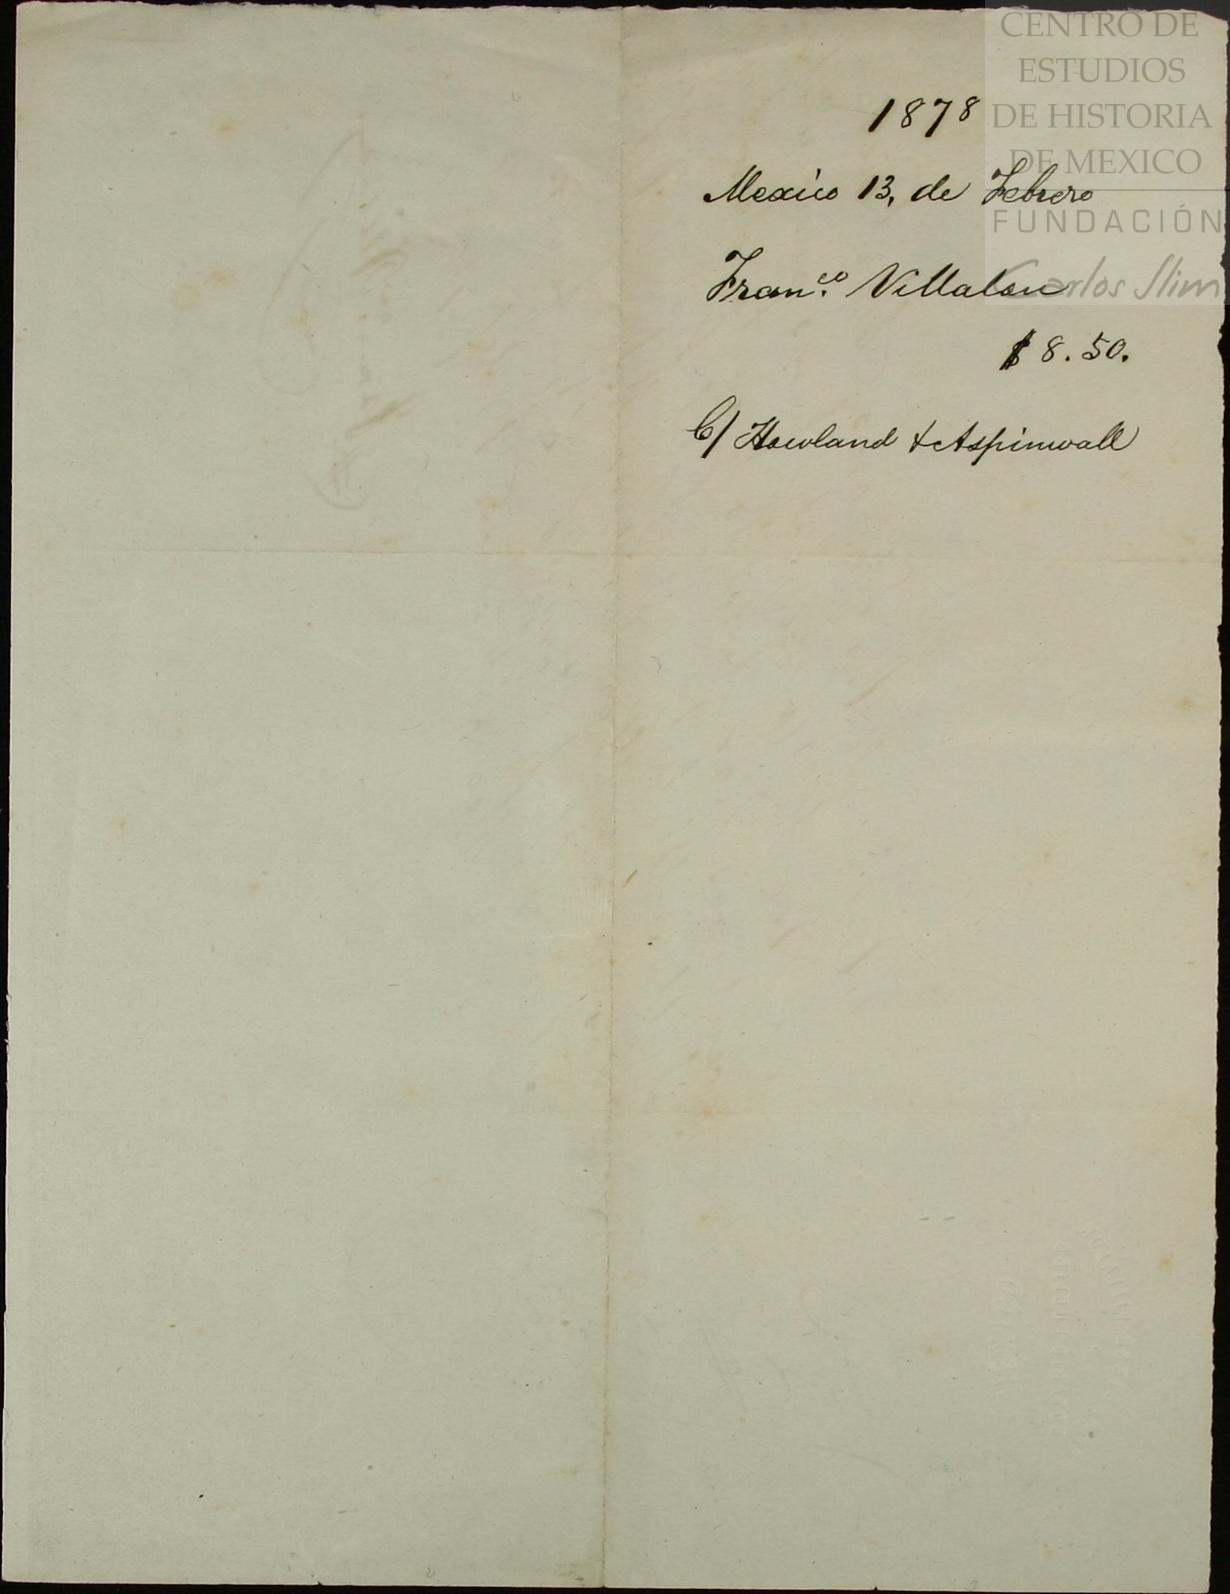 CENTRO DE
ESTUDIOS
DE HISTORIA
DE MEXICO
FUNDACIÓN
Carlos Slim
1878
Mexico 13, de Febrero
Fran.co Villalon
$ 8.50.
C/ Howland & Aspinwall